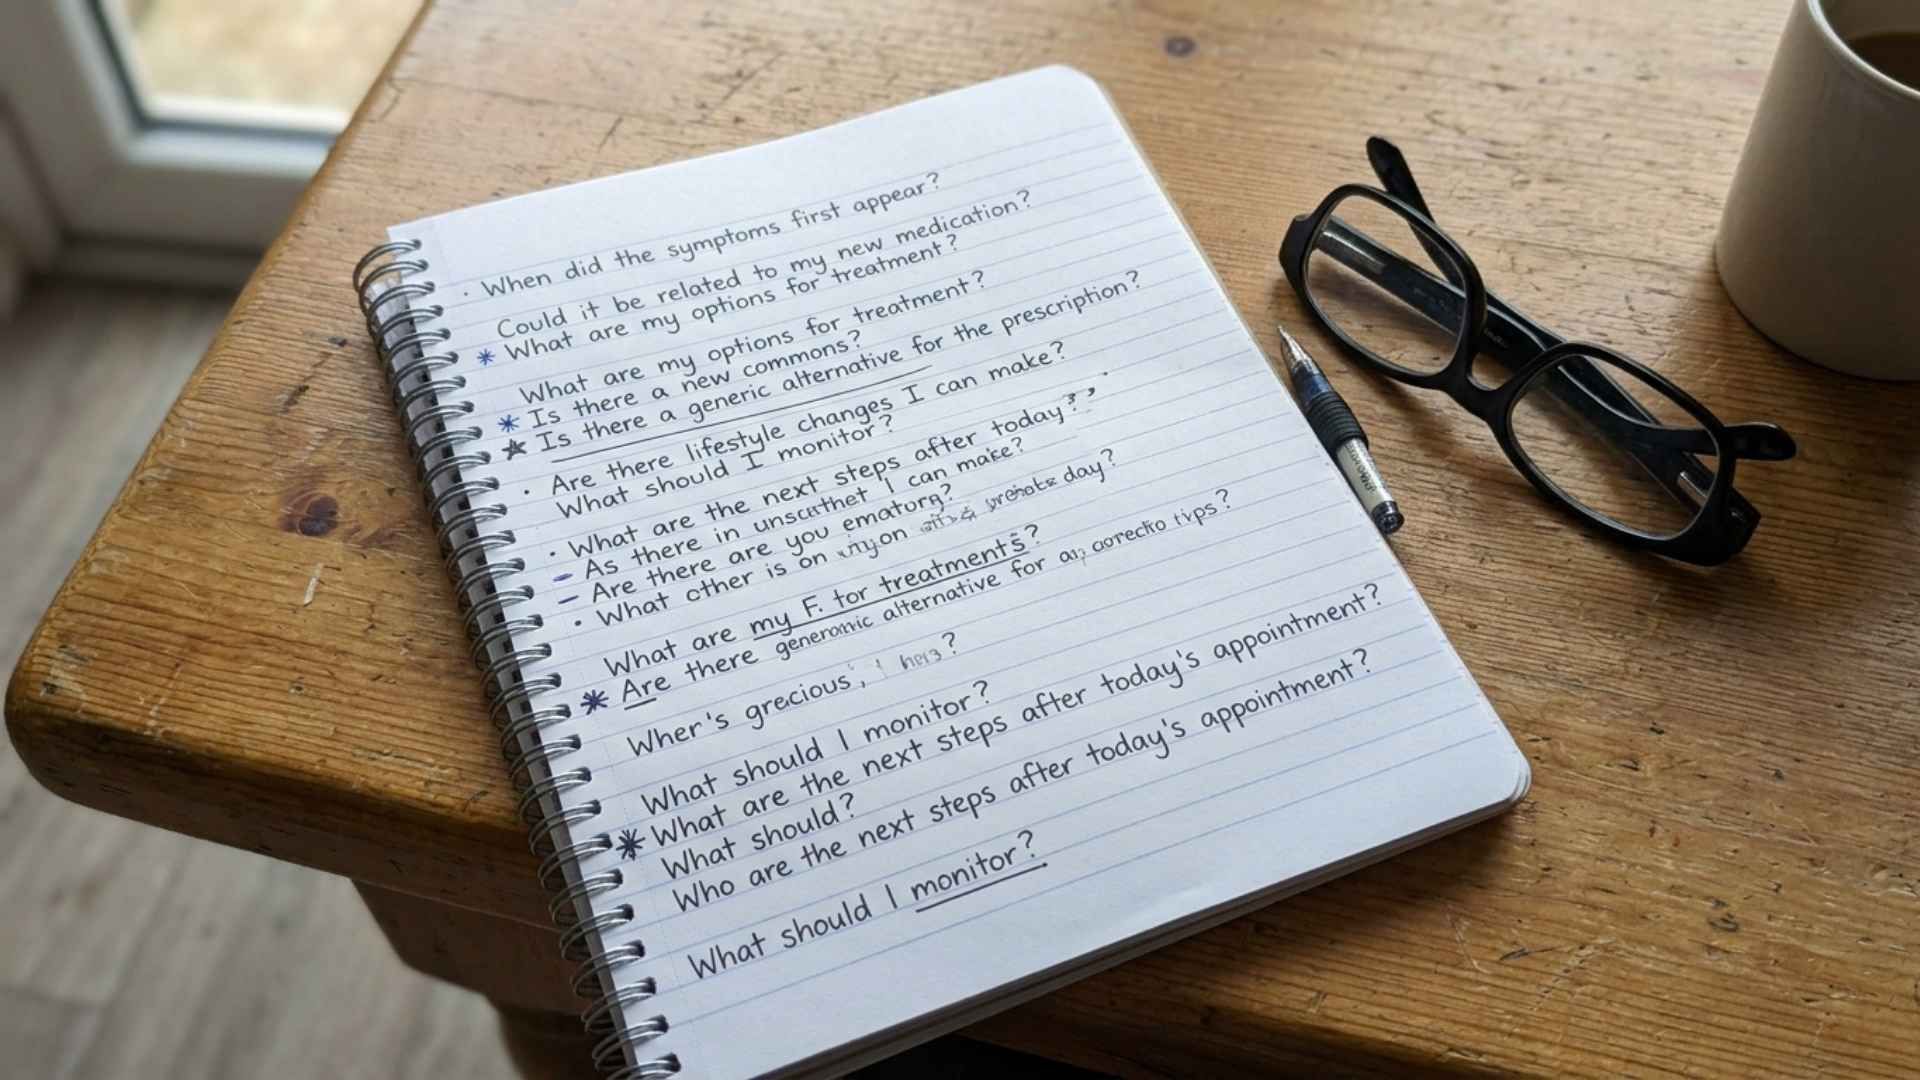 · When did the symptoms first appear?
Could it be related to my new medication?
* What are my options for treatment?
What are my options for treatment?
* Is there a new commons?
☆ Is there a generic alternative for the prescription?
· Are there lifestyle changes I can make?
What should I monitor?
· What are the next steps after today?
– As there in I can make?
– Are there are you
· What other is on day?
What are my F. for treatments?
* Are there alternative for
Wher's grecious,
What should I monitor?
* What are the next steps after today's appointment?
What should?
Who are the next steps after today's appointment?
What should I monitor?